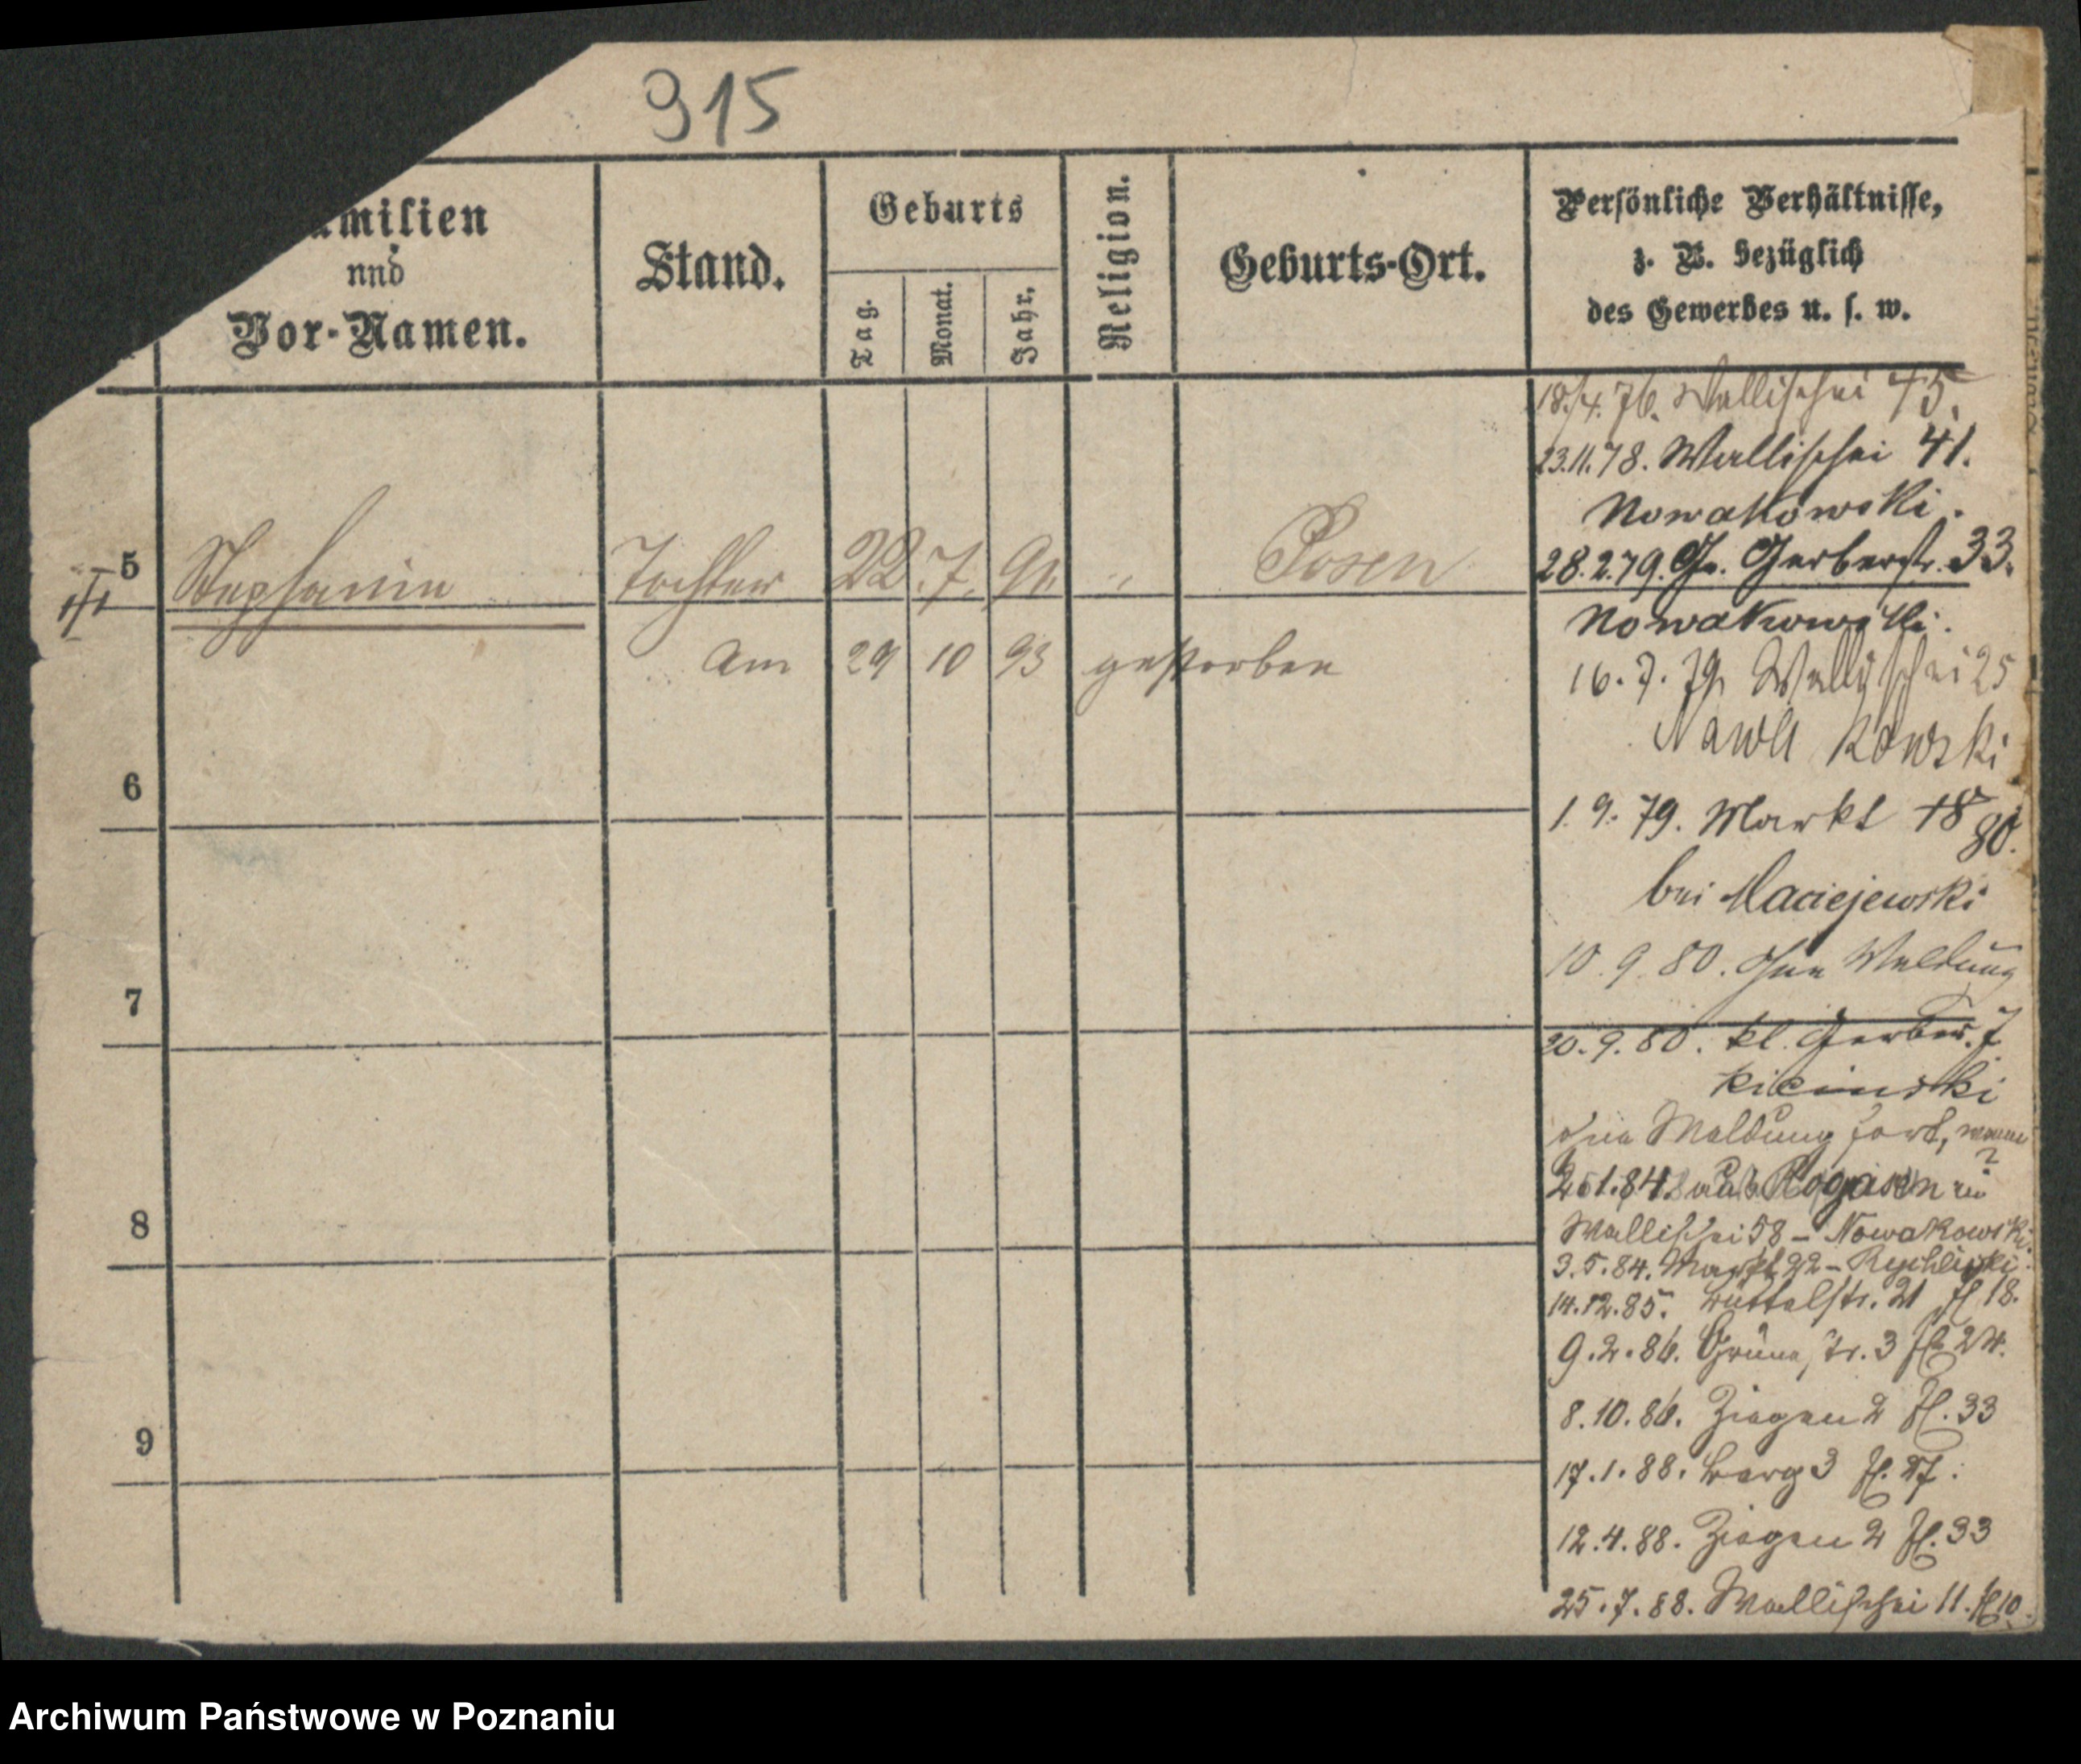 915
milien
und
Vor-Namen.
Stand.
Geburts
Tag.
Monat.
Jahr.
Religion.
Geburts-Ort.
Persönliche Verhältnisse,
z. B. bezüglich
des Gewerbes u. s. w.
5 Stephanie Tochter 22. 7. 91. " Posen
Am 29 10 93 gestorben
6
7
8
9
18./4. 76. Wallischei 45.
23.11.78. Wallischei 41.
Nowakowski.
28.2.79. Gr. Gerberstr. 33.
Nowakowski.
16.7.79 Wallischei 25
Nawakowski
1.9.79. Markt 18
80.
bei Maciejewski
10.9.80. Ohne Meldung
20.9.80. kl. Gerber. 7
Kicinski
ohne Meldung fort, wann
?
Rogasen in
Wallischei 58 – Nowakowski.
3.5.84. Markt 92 –
14.12.85. Büttelstr. 21 18.
9.2.86. Grünestr. 3 24.
8.10.86. Ziegen 2 33
17.1.88. Berg 3 27.
12.4.88. Ziegen 2 33
25.7.88. Wallischei 11. 10.
Archiwum Państwowe w Poznaniu